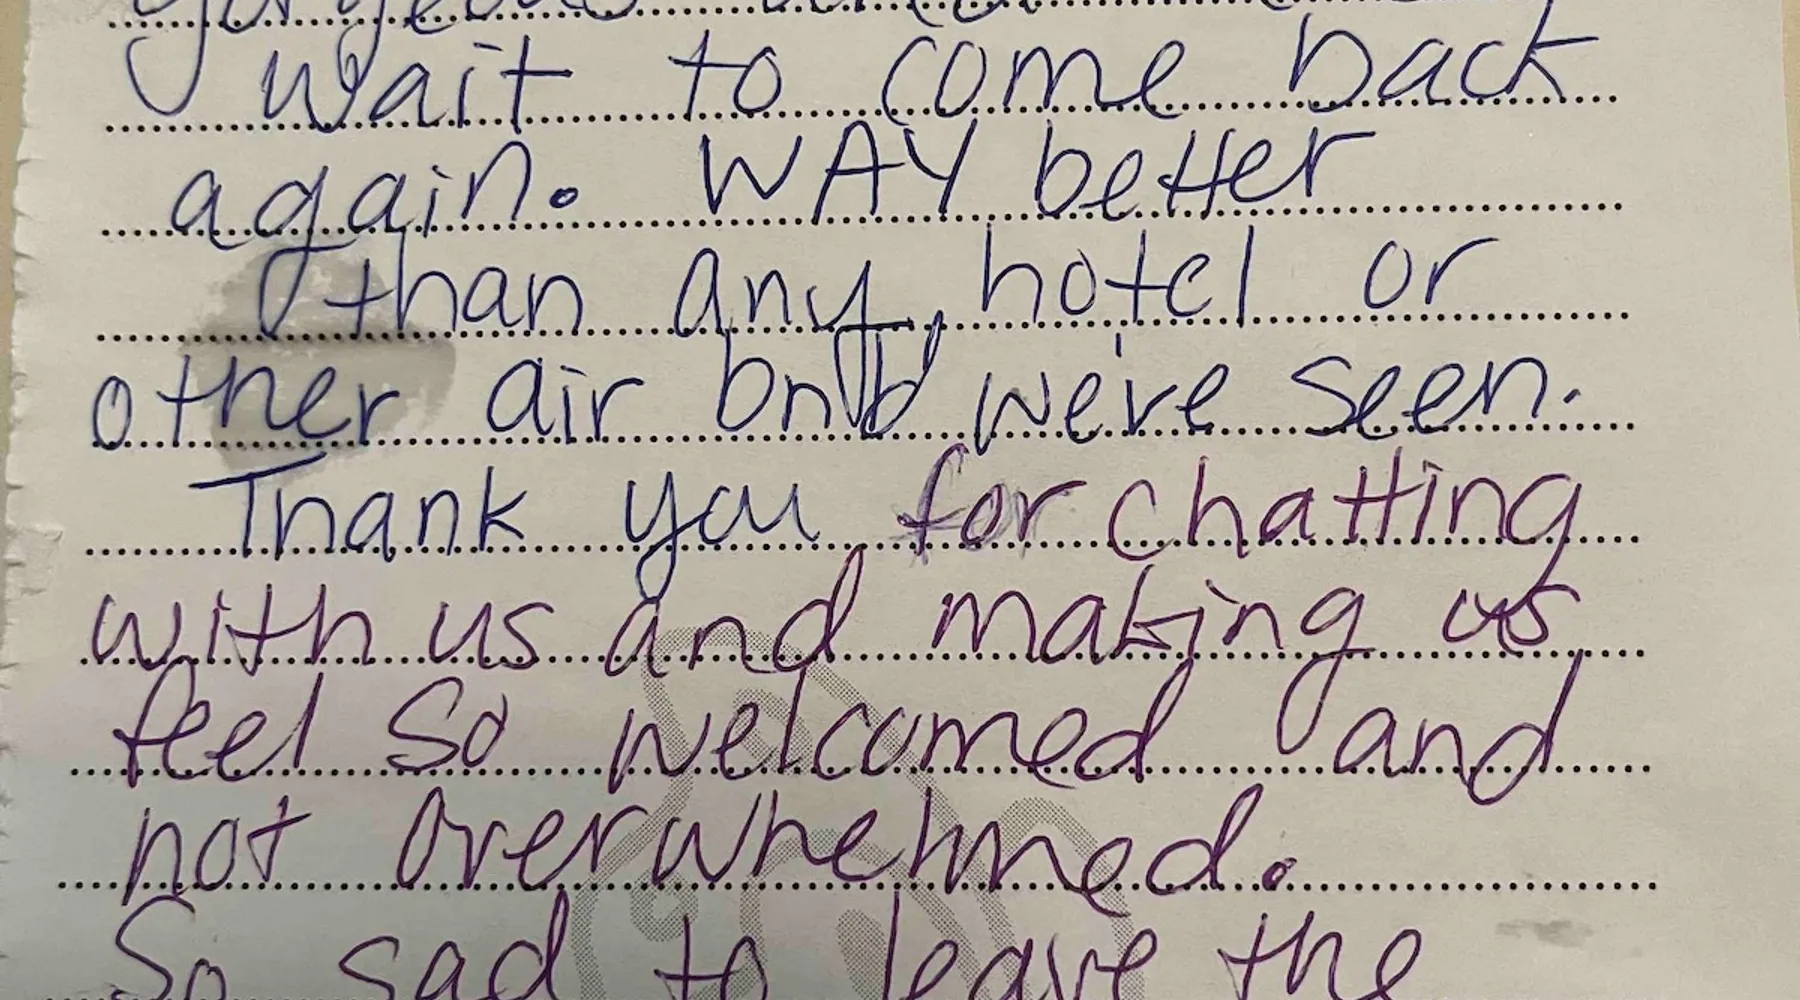 gorgeous
wait to come back
again. WAY better
than any hotel or
other air bnb we've seen.
Thank you for chatting
with us and making us
feel so welcomed and
not overwhelmed.
So sad to leave the